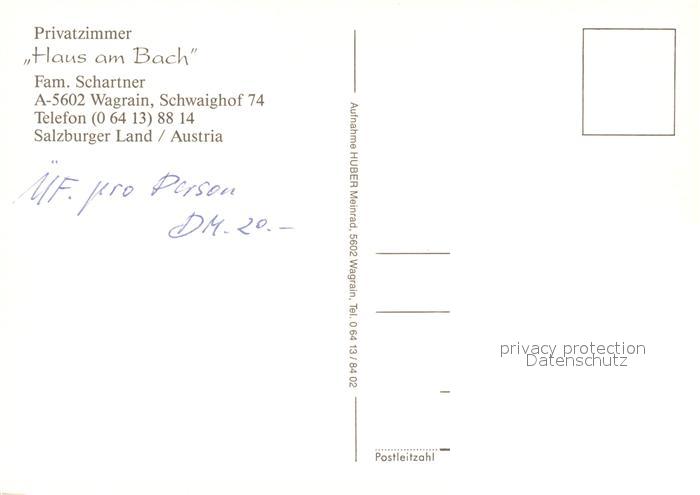 Privatzimmer
„Haus am Bach“
Fam. Schartner
A-5602 Wagrain, Schwaighof 74
Telefon (0 64 13) 88 14
Salzburger Land / Austria
ÜF. pro Person
DM. 20.–
Aufnahme HUBER Meinrad, 5602 Wagrain, Tel. 0 64 13 / 84 02
privacy protection
Datenschutz
Postleitzahl